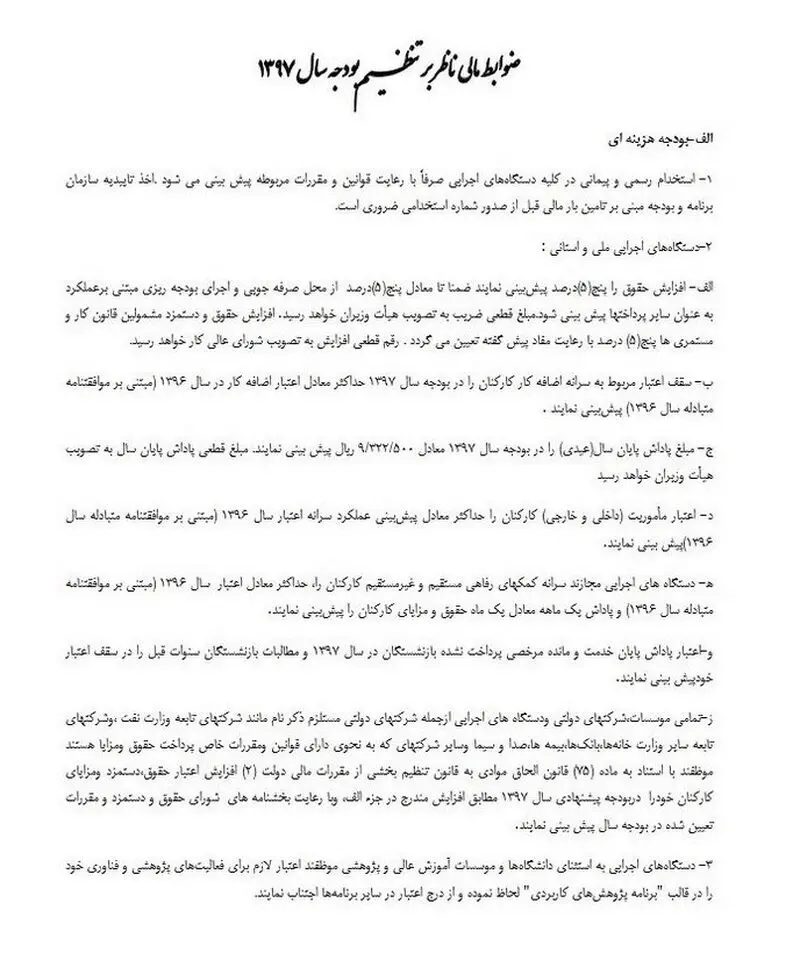 ضوابط مالی ناظر بر تنظیم بودجه سال ۱۳۹۷
الف-بودجه هزینه ای
۱- استخدام رسمی و پیمانی در کلیه دستگاه‌های اجرایی صرفاً با رعایت قوانین و مقررات مربوطه پیش بینی می شود .اخذ تاییدیه سازمان
برنامه و بودجه مبنی بر تامین بار مالی قبل از صدور شماره استخدامی ضروری است.
۲-دستگاه‌های اجرایی ملی و استانی :
الف- افزایش حقوق را پنج(۵)درصد پیش‌بینی نمایند ضمنا تا معادل پنج(۵)درصد از محل صرفه جویی و اجرای بودجه ریزی مبتنی برعملکرد
به عنوان سایر پرداختها پیش بینی شود.مبلغ قطعی ضریب به تصویب هیأت وزیران خواهد رسید. افزایش حقوق و دستمزد مشمولین قانون کار و
مستمری ها پنج(۵) درصد با رعایت مفاد پیش گفته تعیین می گردد . رقم قطعی افزایش به تصویب شورای عالی کار خواهد رسید.
ب- سقف اعتبار مربوط به سرانه اضافه کار کارکنان را در بودجه سال ۱۳۹۷ حداکثر معادل اعتبار اضافه کار در سال ۱۳۹۶ (مبتنی بر موافقتنامه
متبادله سال ۱۳۹۶) پیش‌بینی نمایند .
ج- مبلغ پاداش پایان سال(عیدی) را در بودجه سال ۱۳۹۷ معادل ۹/۳۲۲/۵۰۰ ریال پیش بینی نمایند. مبلغ قطعی پاداش پایان سال به تصویب
هیأت وزیران خواهد رسید
د- اعتبار مأموریت (داخلی و خارجی) کارکنان را حداکثر معادل پیش‌بینی عملکرد سرانه اعتبار سال ۱۳۹۶ (مبتنی بر موافقتنامه متبادله سال
۱۳۹۶)پیش بینی نمایند.
ه- دستگاه های اجرایی مجازند سرانه کمکهای رفاهی مستقیم و غیرمستقیم کارکنان را، حداکثر معادل اعتبار سال ۱۳۹۶ (مبتنی بر موافقتنامه
متبادله سال ۱۳۹۶) و پاداش یک ماهه معادل یک ماه حقوق و مزایای کارکنان را پیش‌بینی نمایند.
و-اعتبار پاداش پایان خدمت و مانده مرخصی پرداخت نشده بازنشستگان در سال ۱۳۹۷ و مطالبات بازنشستگان سنوات قبل را در سقف اعتبار
خودپیش بینی نمایند.
ز-تمامی موسسات،شرکتهای دولتی ودستگاه های اجرایی ازجمله شرکتهای دولتی مستلزم ذکر نام مانند شرکتهای تابعه وزارت نفت ،وشرکتهای
تابعه سایر وزارت خانه‌ها،بانک‌ها،بیمه ها،صدا و سیما وسایر شرکتهای که به نحوی دارای قوانین ومقررات خاص پرداخت حقوق ومزایا هستند
موظفند با استناد به ماده (۷۵) قانون الحاق موادی به قانون تنظیم بخشی از مقررات مالی دولت (۲) افزایش اعتبار حقوق،دستمزد ومزایای
کارکنان خودرا دربودجه پیشنهادی سال ۱۳۹۷ مطابق افزایش مندرج در جزء الف، وبا رعایت بخشنامه های شورای حقوق و دستمزد و مقررات
تعیین شده در بودجه سال پیش بینی نمایند.
۳- دستگاه‌های اجرایی به استثنای دانشگاه‌ها و موسسات آموزش عالی و پژوهشی موظفند اعتبار لازم برای فعالیت‌های پژوهشی و فناوری خود
را در قالب "برنامه پژوهش‌های کاربردی" لحاظ نموده و از درج اعتبار در سایر برنامه‌ها اجتناب نمایند.